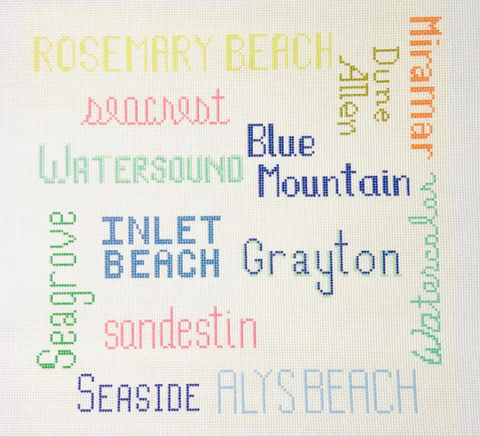 ROSEMARY BEACH
Miramar
Dune
Allen
seacrest
Blue
Mountain
WATERSOUND
Watercolor
Seagrove
INLET
BEACH
Grayton
sandestin
SEASIDE
ALYS BEACH